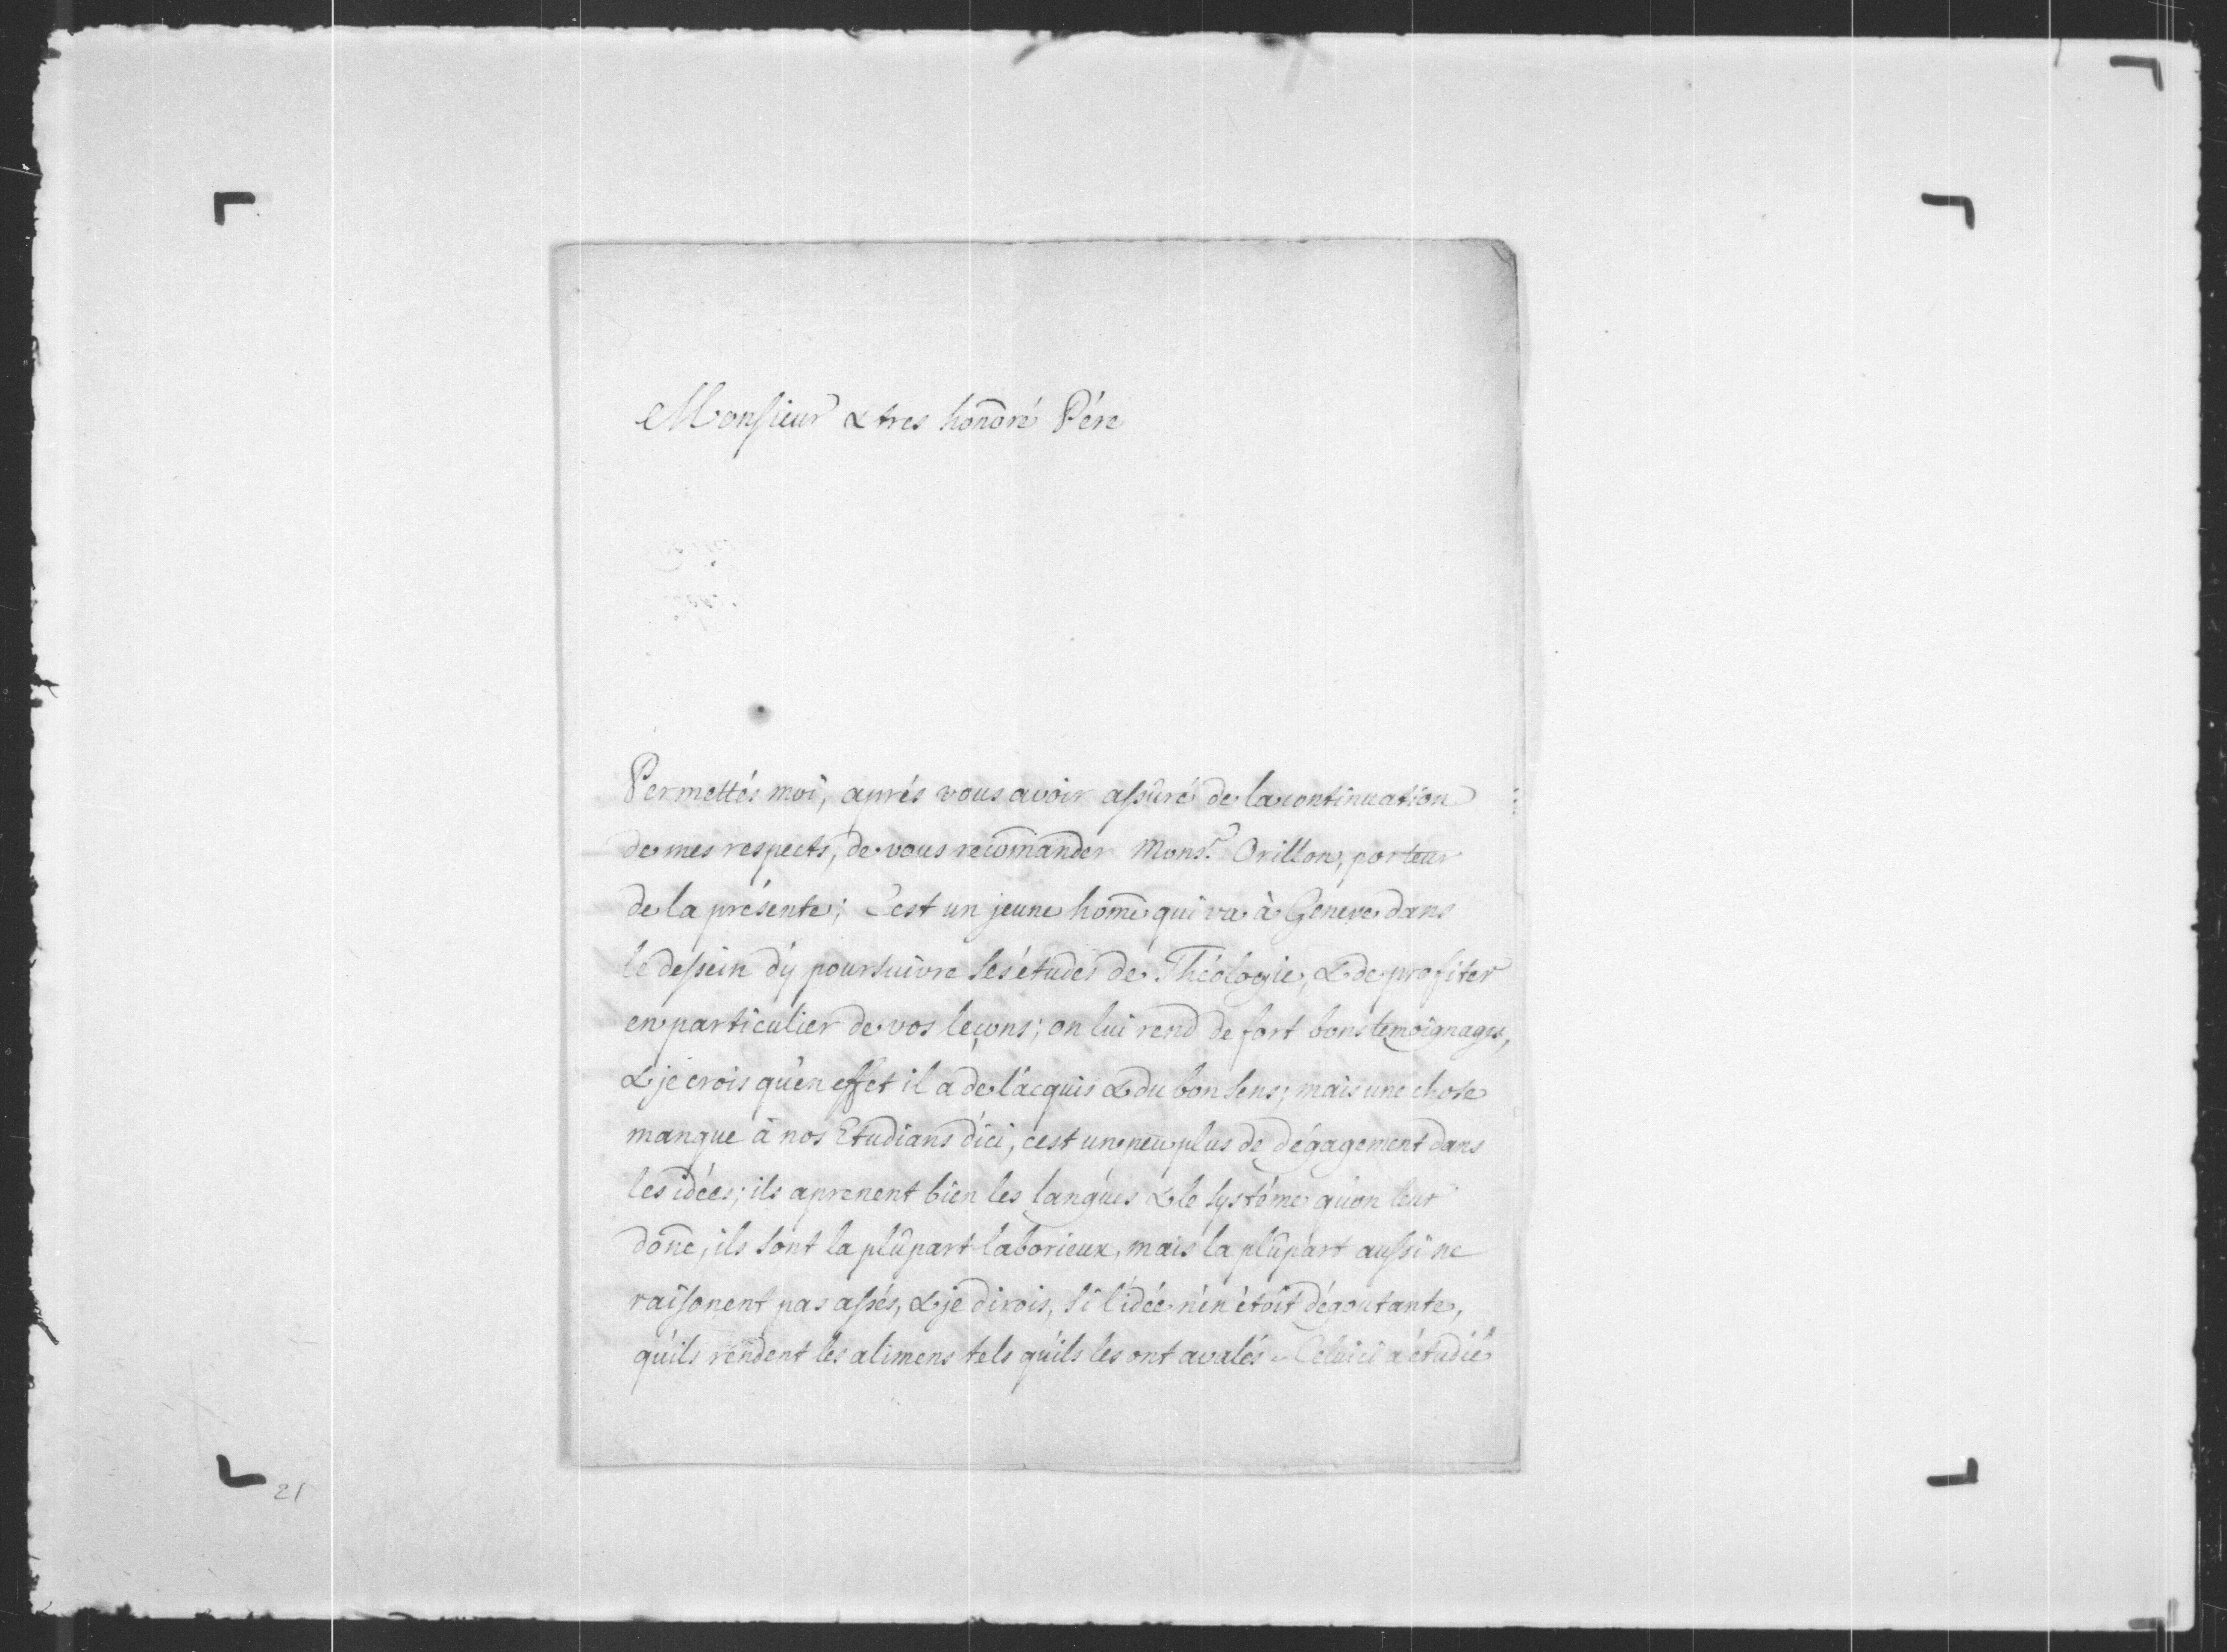 Monsieur & tres honoré Pére
Permettés moi, aprés vous avoir assûré de la continuation
de mes respects, de vous recomander Monsr. Orillon, porteur
de la présente; C'est un jeune home qui va à Geneve dans
le dessein d'y poursuivre ses études de Théologie, & de profiter
en particulier de vos leçons; on lui rend de fort bons temoignages,
& je crois qu'en effet il a de l'acquis & du bon sens; mais une chose
manque à nos Etudians d'ici, c'est un peu plus de dégagement dans
les idées; ils aprenent bien les langues & le systéme qu'on leur
done, ils sont la plûpart laborieux, mais la plûpart aussi ne
raisonent pas assés, & je dirois, si l'idée n'en étoit dégoutante,
qu'ils rendent les alimens tels qu'ils les ont avalés. Celuici a étudié
21